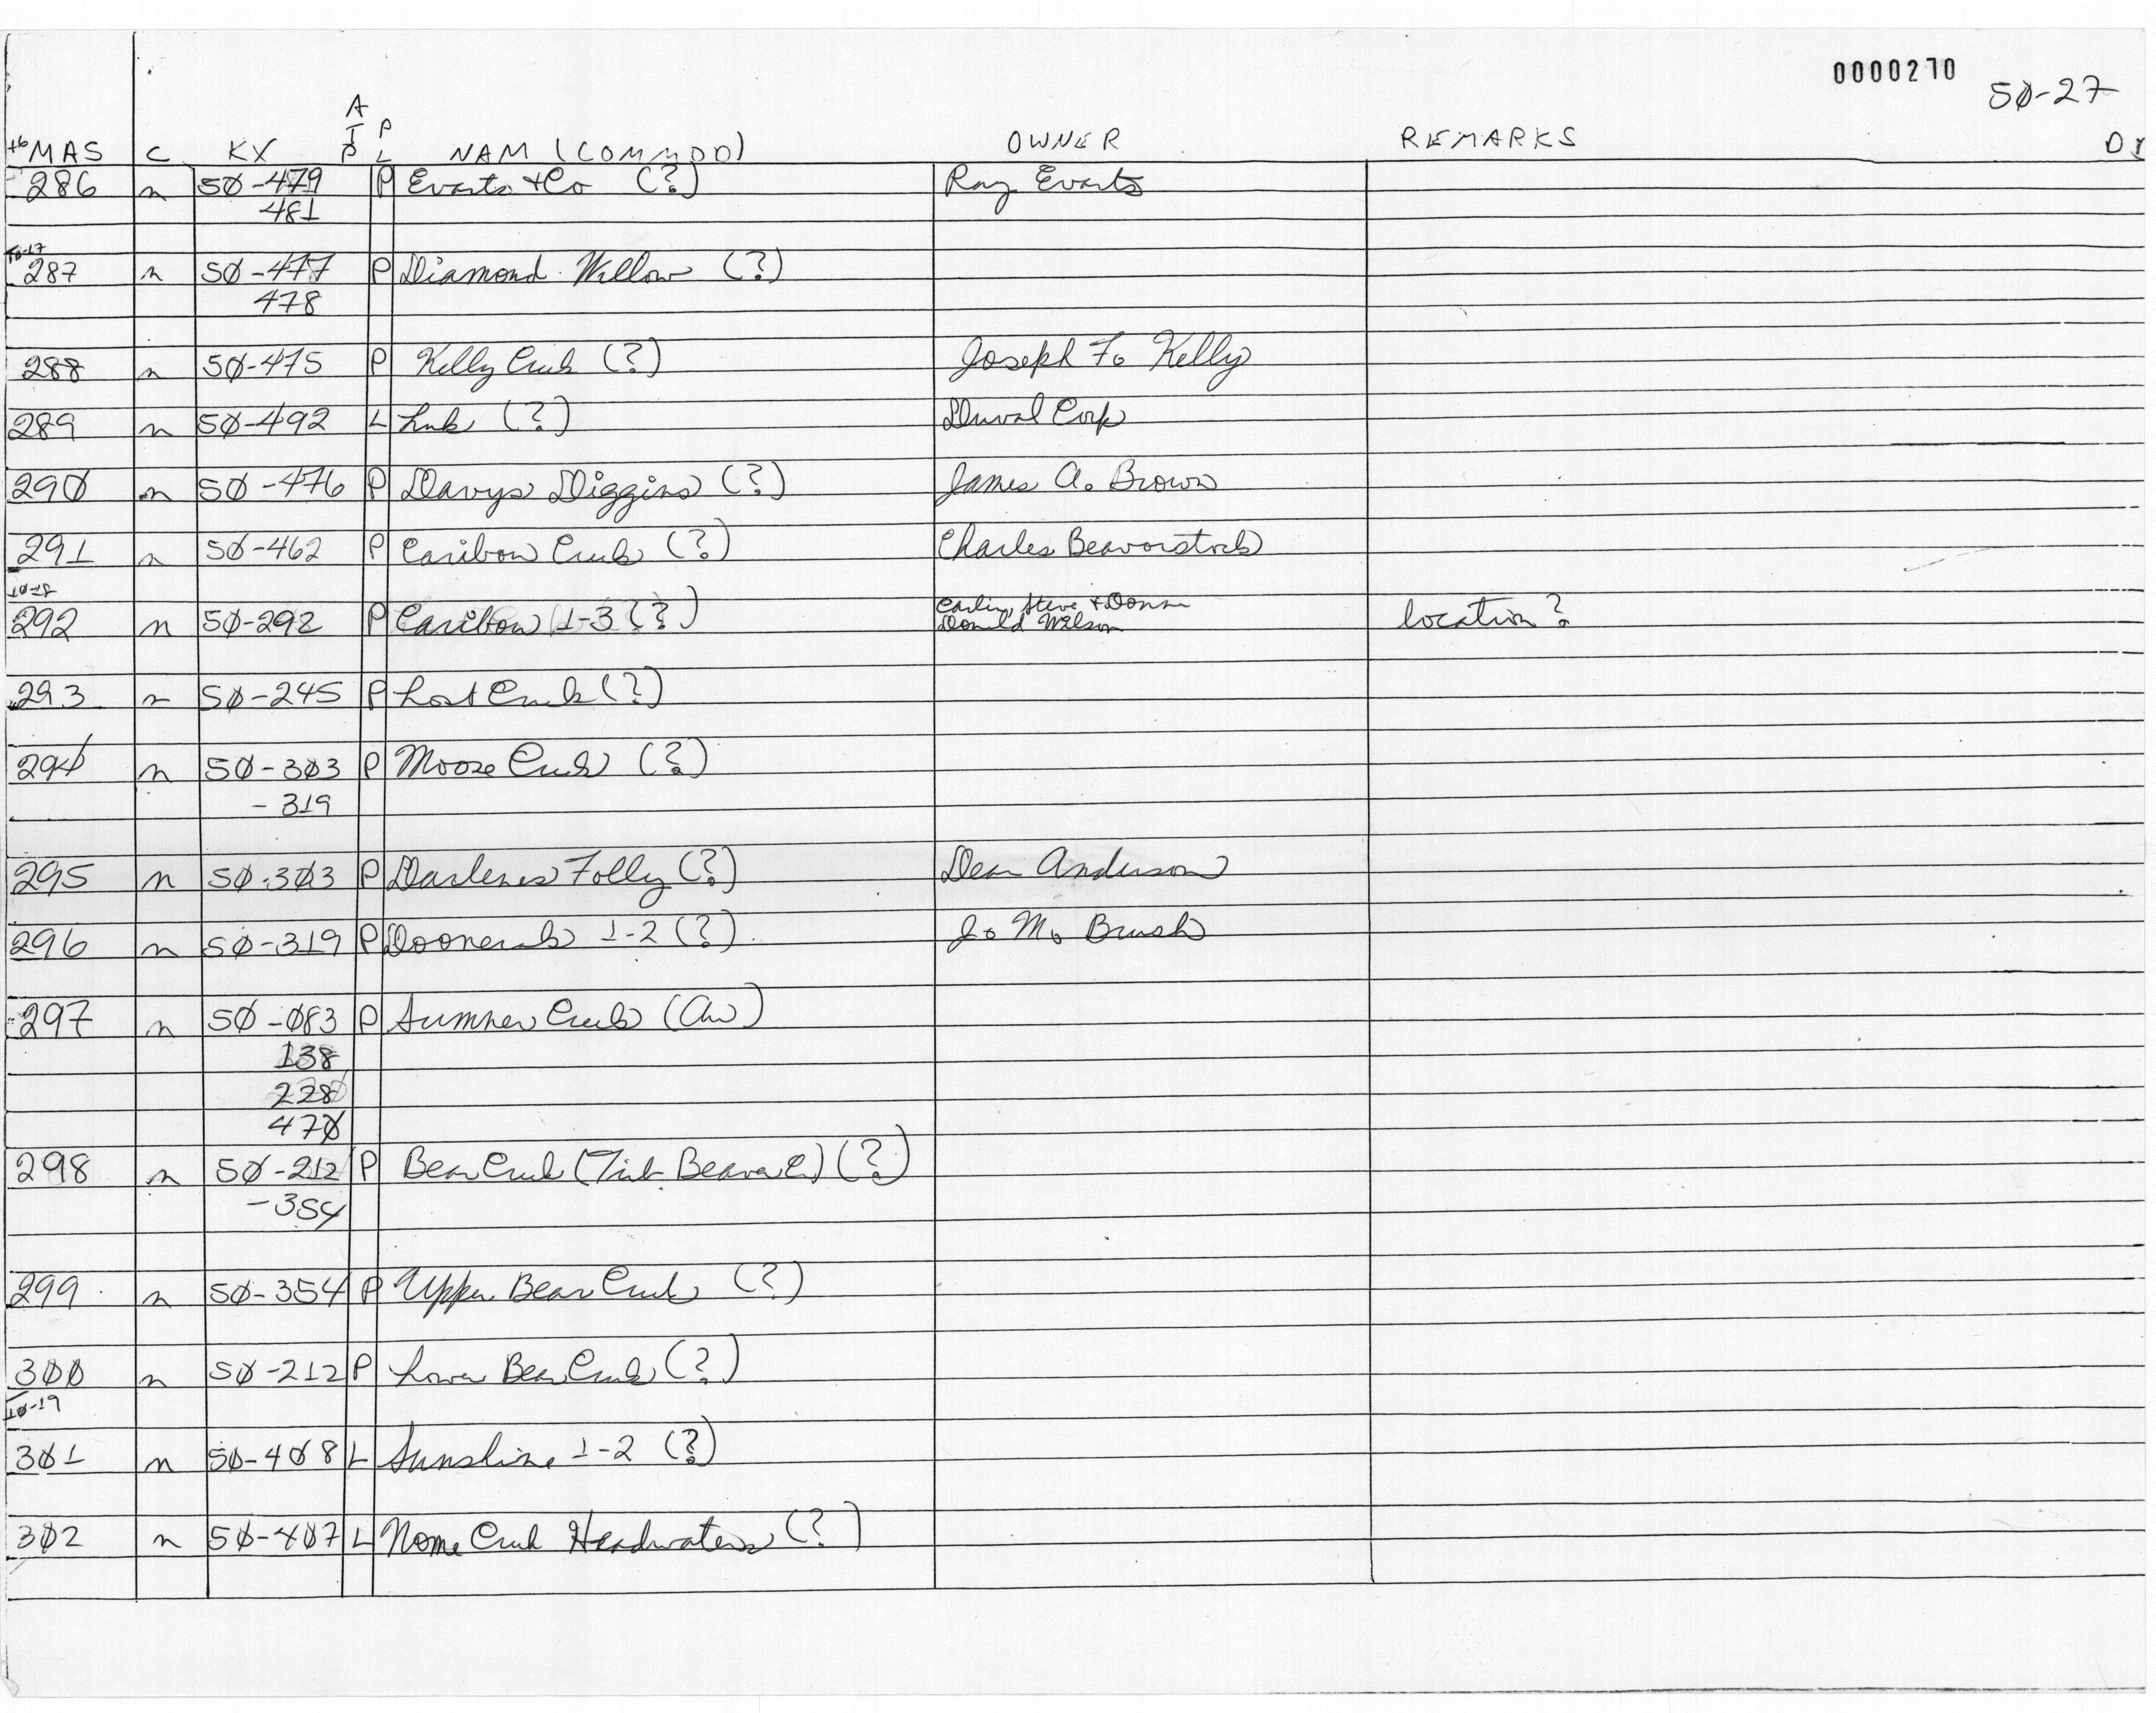 0000270
50-27
A
T P
P L
MAS C KX NAM (COMMOD) OWNER REMARKS
286 n 50-479 P Evarts + Co (?) Ray Evarts
481
10-17
287 n 50-477 P Diamond Willow (?)
478
288 n 50-475 P Kelly Creek (?) Joseph F. Kelly
289 n 50-492 L (?) Duval Corp
290 n 50-476 P Davys Diggins (?) James A. Brown
291 n 50-462 P Caribou Creek (?) Charles Beaverstock
10-18
292 n 50-292 P Caribou 1-3 (?) Steve + location?
Donald Wilson
293 n 50-245 P Lost Creek (?)
294 n 50-303 P Moose Creek (?)
-319
295 n 50-303 P Darlenes Folly (?) Dean Anderson
296 n 50-319 P 1-2 (?) J. M. Brush
297 n 50-083 P Sumner Creek (Au)
138
228
470
298 n 50-212 P Bear Creek (Trib Beaver C) (?)
-354
299 n 50-354 P Upper Bear Creek (?)
300 n 50-212 P Lower Bear Creek (?)
10-19
301 n 50-408 L Sunshine 1-2 (?)
302 n 50-407 L Nome Creek Headwaters (?)